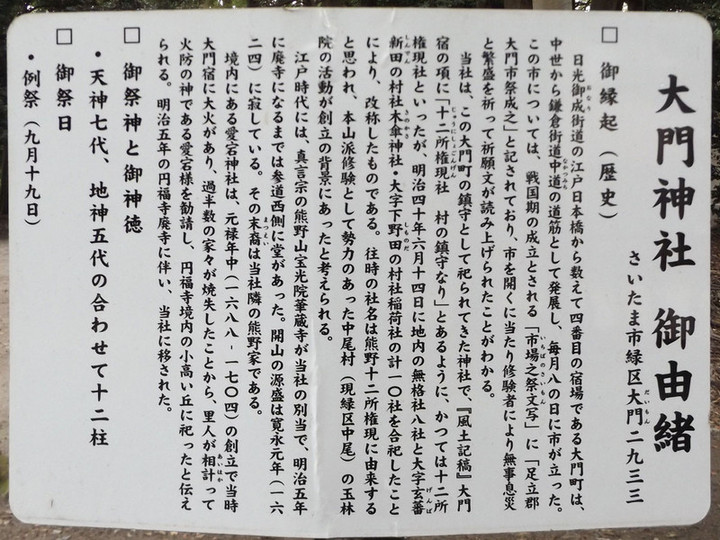 大門神社 御由緒
さいたま市緑区大門二九三三
□ 御縁起（歴史）
日光御成街道の江戸日本橋から数えて四番目の宿場である大門町は、
中世から鎌倉街道中道の道筋として発展し、毎月八の日に市が立った。
この市については、戦国期の成立とされる「市場之祭文写」に「足立郡
大門市祭成之」と記されており、市を開くに当たり修験者により無事息災
と繁盛を祈って祈願文が読み上げられたことがわかる。
当社は、この大門町の鎮守として祀られてきた神社で、『風土記稿』大門
宿の項に「十二所権現社　村の鎮守なり」とあるように、かつては十二所
権現社といったが、明治四十年六月十四日に地内の無格社八社と大字玄蕃
新田の村社木傘神社・大字下野田の村社稲荷社の計一〇社を合祀したこと
により、改称したものである。往時の社名は熊野十二所権現に由来する
と思われ、本山派修験として勢力のあった中尾村（現緑区中尾）の玉林
院の活動が創立の背景にあったと考えられる。
江戸時代には、真言宗の熊野山宝光院華蔵寺が当社の別当で、明治五年
に廃寺になるまでは参道西側に堂があった。開山の源盛は寛永元年（一六
二四）に寂している。その末裔は当社隣の熊野家である。
境内にある愛宕神社は、元禄年中（一六八八‐一七〇四）の創立で当時
大門宿に大火があり、過半数の家々が焼失したことから、里人が相計って
火防の神である愛宕様を勧請し、円福寺境内の小高い丘に祀ったと伝え
られる。明治五年の円福寺廃寺に伴い、当社に移された。
□ 御祭神と御神徳
・天神七代、地神五代の合わせて十二柱
□ 御祭日
・例祭（九月十九日）